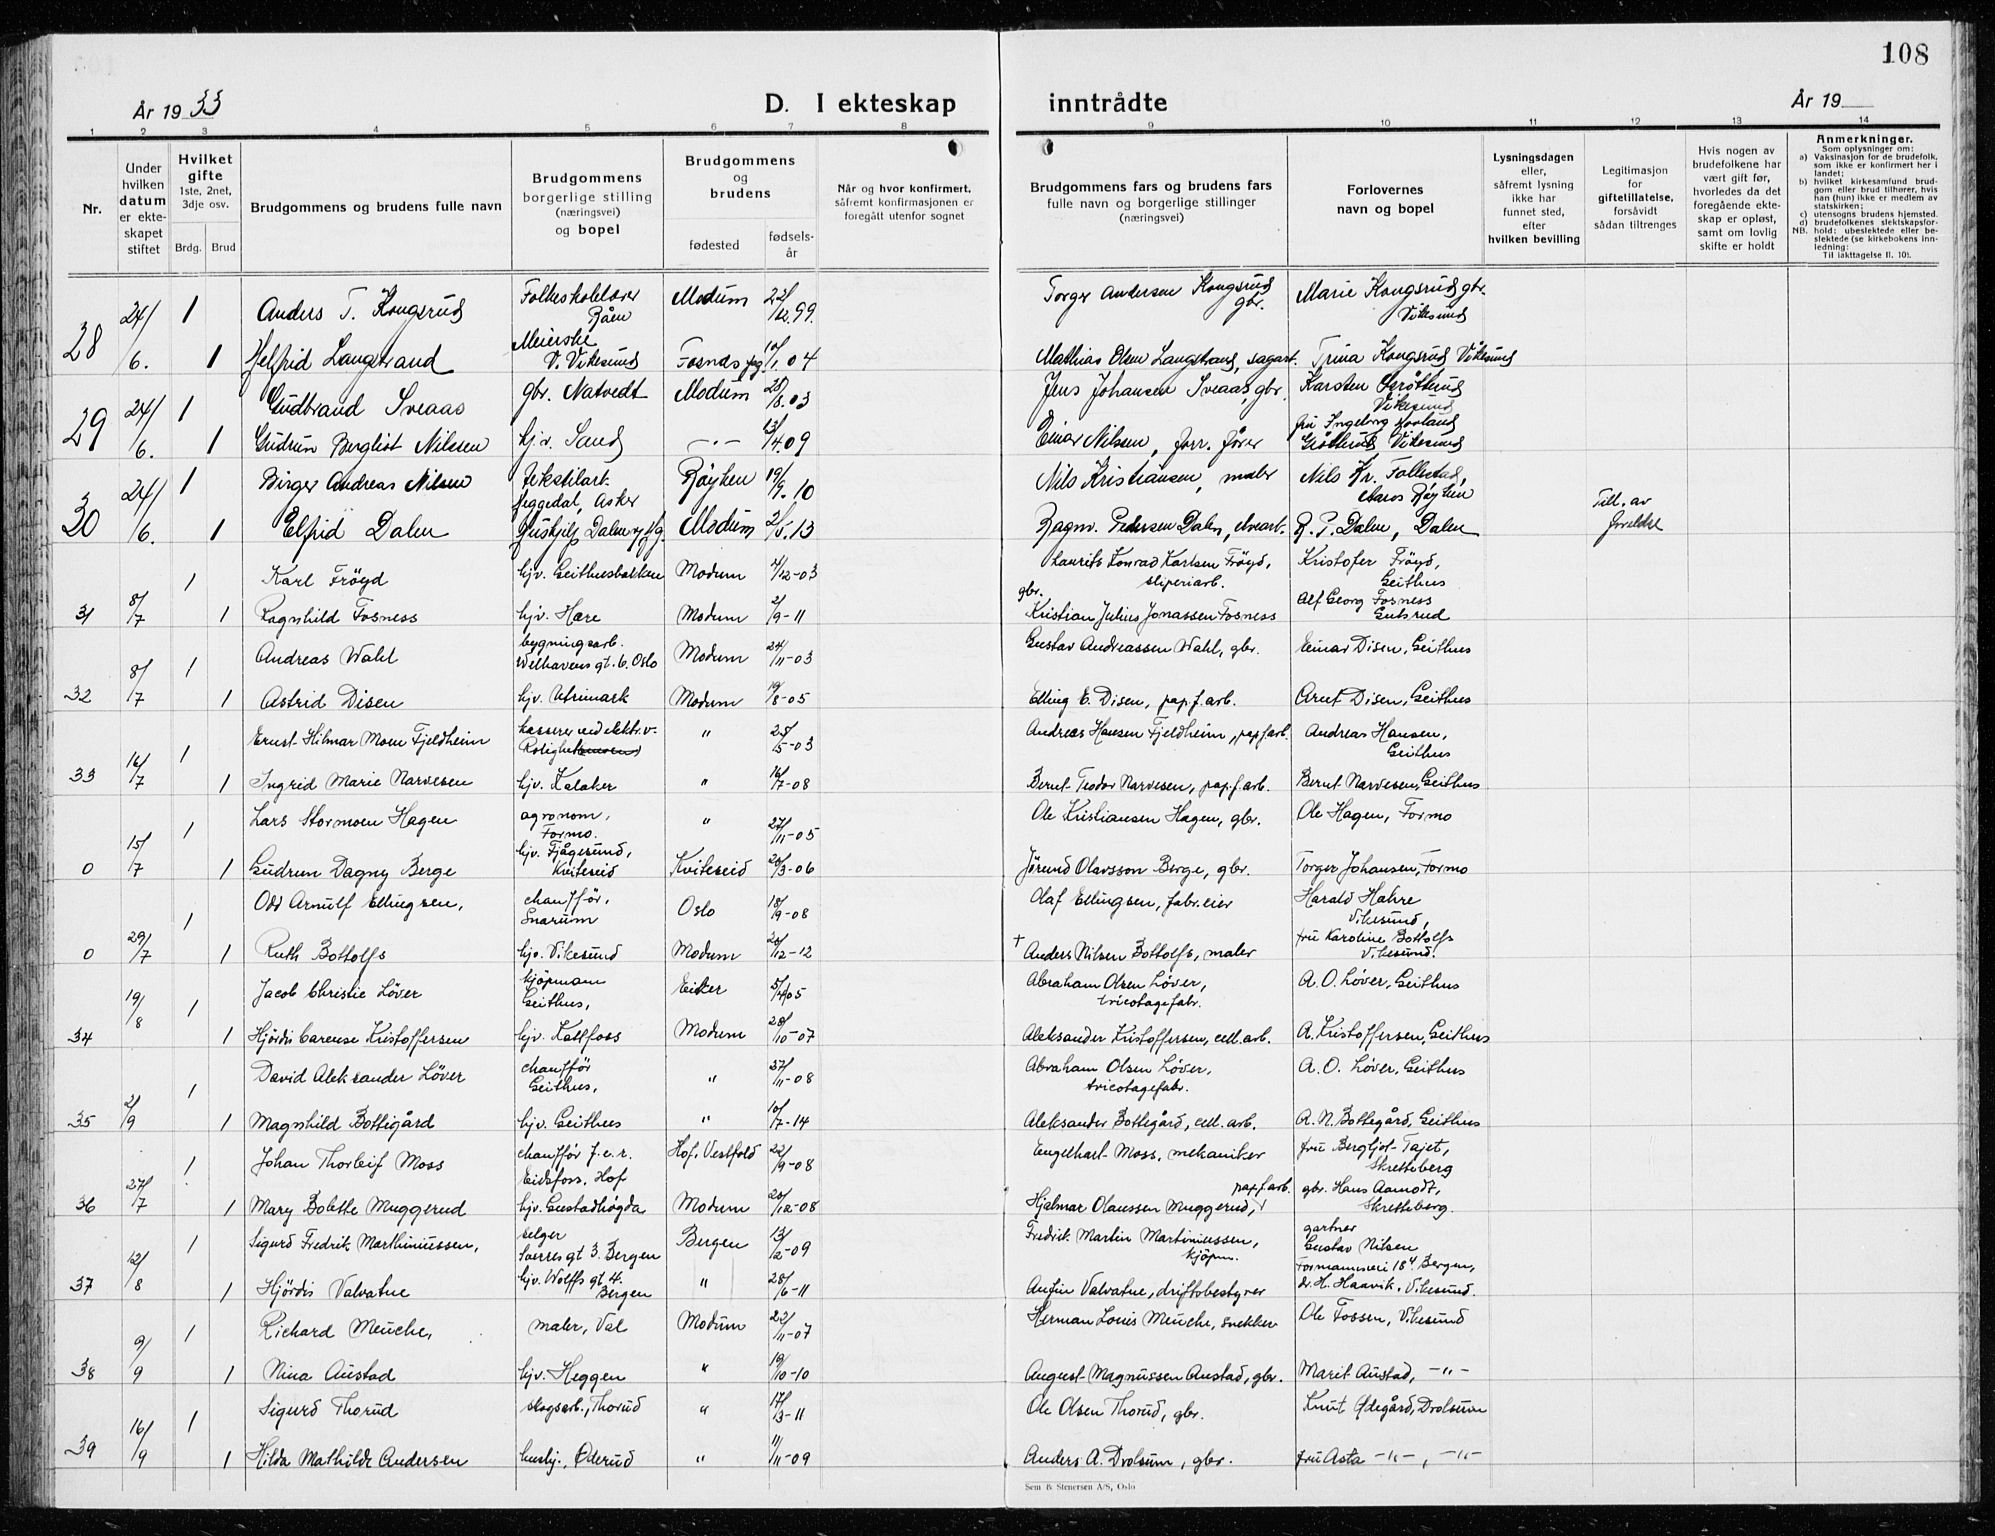 108
År 1933
D. I ekteskap inntrådte
År 19
1 2 3 4 5 6 7 8 9 10 11 12 13 14
Nr.
Under hvilken datum er ekteskapet stiftet
Hvilket gifte
1ste, 2net, 3dje osv.
Brdg. Brud
Brudgommens og brudens fulle navn
Brudgommens borgerlige stilling (næringsvei) og bopel
Brudgommens og brudens
fødested
fødselsår
Når og hvor konfirmert, såfremt konfirmasjonen er foregått utenfor sognet
Brudgommens fars og brudens fars fulle navn og borgerlige stillinger (næringsvei)
Forlovernes navn og bopel
Lysningsdagen eller, såfremt lysning ikke har funnet sted, efter hvilken bevilling
Legitimasjon for giftetillatelse, forsåvidt sådan tiltrenges
Hvis nogen av brudefolkene har vært gift før, hvorledes da det foregående ekteskap er opløst, samt om lovlig skifte er holdt
Anmerkninger.
Som oplysninger om:
a) Vaksinasjon for de brudefolk, som ikke er konfirmert her i landet;
b) hvilket kirkesamfund brudgom eller brud tilhører, hvis han (hun) ikke er medlem av statskirken;
c) utensogns brudens hjemsted.
d) brudefolkenes slektskapsforhold: ubeslektede eller beslektede (se kirkebokens innledning:
NB.
Til iakttagelse II. 10).
28 24/6. 1 Anders T. Kongsrud Folkeskolelærer Råen Modum 22/12.99. Torger Andersen Kongsrud gbr. Marie Kongsrud gbr. Vikesund
1 Helfrid Langstrand Meierske V. Vikesund Fosnes 10/1.04 Mathias Olsen Langstrand, sagarb. Trina Kongsrud Vikesund
29 24/6. 1 Gudbrand Sveaas gbr. Natvedt Modum 20/8.03 Jens Johansen Sveaas, gbr. Karsten Grøtterud Vikesund
1 Gudrun Bergliot Nilssen hjv. Sand -"- 13/4.09 Einar Nilsen, forr. fører fru Ingeborg Hovland Grøtterud Vikesund
30 24/6. 1 Birger Andreas Nilsen tekstilarb. Heggedal, Asker Røyken 19/9.10 Nils Kristiansen, maler Nils Kr. Follestad, Røyken
1 Elfrid Dalen Hushjelp Dalen Modum 2/5.13 Ragnv. Pedersen Dalen, elvearb. R. P. Dalen, Dalen Till. av foreldre
31 8/7 1 Karl Frøyd hjv. Geithusbakken Modum 4/12-03 Laurits Konrad Karlsen Frøyd, sliperiarb. Kristofer Frøyd, Geithus
1 Ragnhild Fosness hjv. Hære Modum 2/9-11 gbr. Kristian Julius Jonassen Fosness Alf Georg Fosness Gulsrud
32 8/7 1 Andreas Wahl bygningsarb. Welhavens gt. 6. Oslo Modum 24/11-03 Gustav Andreassen Wahl, gbr. Einar Disen, Geithus
1 Astrid Disen hjv. Utrimark Modum 19/8-05 Elling E. Disen, pap.f.arb. Arnt Disen, Geithus
33 16/7 1 Ernst Hilmar Moen Fjeldheim kasserer ved elektr.v. " 25/5-03 Andreas Hansen Fjeldheim, papf.arb. Andreas Hansen, Geithus
1 Ingrid Marie Narvesen hjv. Kalaker " 16/7-08 Bernt Teodor Narvesen, pap.f.arb. Bernt Narvesen, Geithus
0 15/7 1 Lars Stormoen Hagen agronom, Formo. " 27/11-05 Ole Kristiansen Hagen, gbr. Ole Hagen, Formo
1 Gudrun Dagny Berge hjv. Fjågesund, Kviteseid Kviteseid 20/3-06 Jørund Olavsson Berge, gbr. Torger Johansen, Formo
0 29/7 1 Odd Arnulf Ellingsen, chauffør, Snarum Oslo 18/9-08 Olaf Ellingsen, fabr.eier Harald Hahre Vikesund,
1 Ruth Bottolfs hjv. Vikesund Modum 20/12-12 + Anders Nilsen Bottolfs, maler fru Karoline Bottolfs Vikesund.
34 19/8 1 Jacob Christie Løver kjøpmann Geithus, Eiker 5/4 05 Abraham Olsen Løver, tricotagefabr. A. O. Løver, Geithus
1 Hjørdis Carense Kristoffersen hjv. Kattfoss Modum 28/10-07 Aleksander Kristoffersen, cell.arb. A. Kristoffersen, Geithus
35 2/9 1 David Aleksander Løver chauffør Geithus, " 27/11-08 Abraham Olsen Løver, tricotagefabr. A. O. Løver, Geithus
1 Magnhild Bottigård hjv. Geithus " 10/7-14 Aleksander Bottegård, cell.arb. A. N. Bottegård, Geithus
36 27/7 1 Johan Thorleif Moss chauffør f.e.r. Eidsfoss, Hof Hof, Vestfold 22/9-08 Engelhart Moss, mekaniker fru Bergljot Tajet, Skretteberg
1 Mary Bolette Muggerud hjv. Gustadhøgda Modum 20/12-08 Hjalmar Olaussen Muggerud, papf.arb. gbr. Hans Aamodt, Skretteberg.
37 12/8 1 Sigurd Fredrik Marthiniussen, selger Sverres gt 3. Bergen Bergen 13/12-09 Fredrik Martin Martiniussen, kjøpm. gartner Gustav Nilsen
1 Hjördis Valvatne hjv. Wolffs gt 4. Bergen " 28/6-11 Anfin Valvatne, driftsbestyrer Formannsvei 18 Bergen, dr. H. Haavik, Vikesund.
38 9/9 1 Richard Meuche, maler, Val Modum 22/11-07 Herman Louis Meuche, snekker Ole Fossen, Vikesund
1 Nina Austad hjv. Heggen " 19/10-10 August Magnussen Austad, gbr. Marit Austad, -"-
39 16/9 1 Sigurd Thorud skogsarb., Thorud " 17/3-11 Ole Olsen Thorud, gbr. Knut Ødegård, Drolsum
1 Hilda Mathilde Andersen hushj., Øderud " 11/11-09 Anders A. Drolsum, gbr. fru Asta -"-, -"-
Sem & Stenersen A/S, Oslo